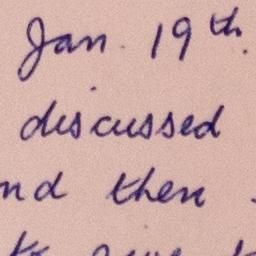 Jan. 19th.
discussed
nd then